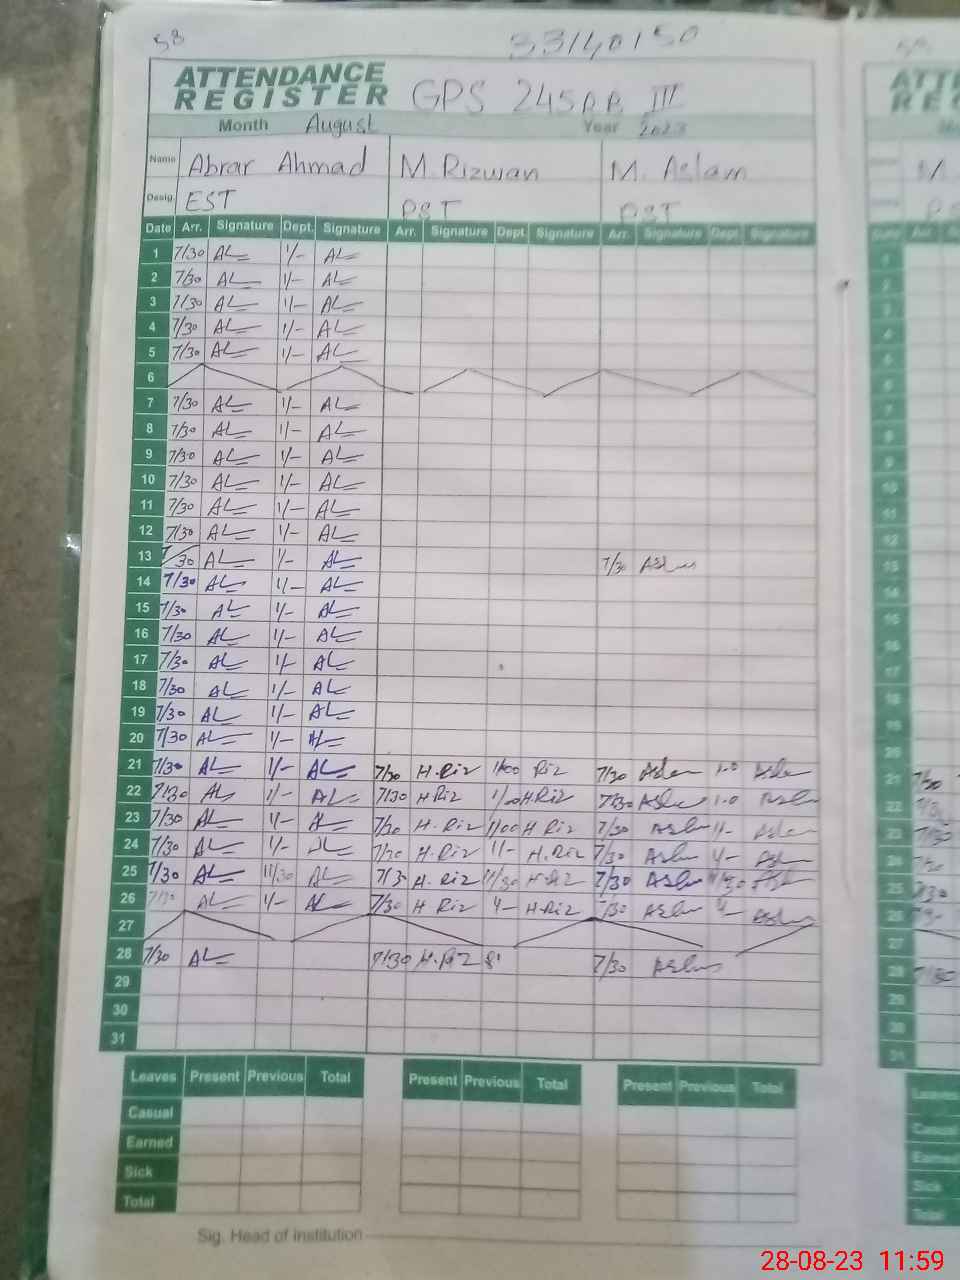 58
33140150
ATTENDANCE
REGISTER GPS 245 R.B. III
Month August Year 2023
Name Abrar Ahmad M. Rizwan M. Aslam
Desig. EST PST PST
Date Arr. Signature Dept. Signature Arr. Signature Dept. Signature Arr. Signature Dept. Signature
1 7/30 AL 1/- AL
2 7/30 AL 1/- AL
3 7/30 AL 1/- AL
4 7/30 AL 1/- AL
5 7/30 AL 1/- AL
6
7 7/30 AL 1/- AL
8 7/30 AL 1/- AL
9 7/30 AL 1/- AL
10 7/30 AL 1/- AL
11 7/30 AL 1/- AL
12 7/30 AL 1/- AL
13 7/30 AL 1/- AL 7/30 Aslam
14 7/30 AL 1/- AL
15 7/30 AL 1/- AL
16 7/30 AL 1/- AL
17 7/30 AL 1/- AL
18 7/30 AL 1/- AL
19 7/30 AL 1/- AL
20 7/30 AL 1/- AL
21 7/30 AL 1/- AL 7/30 M.Riz 1/00 Riz 7/30 Aslam 1.0 Aslam
22 7/30 AL 1/- AL 7/30 M Riz 1/00 M Riz 7/30 Aslam 1.0 Aslam
23 7/30 AL 1/- AL 7/30 M. Riz 1/00 M Riz 7/30 Aslam 1/- Aslam
24 7/30 AL 1/- AL 7/30 M. Riz 1/- M. Riz 7/30 Aslam 1/- Aslam
25 7/30 AL 11/30 AL 7/30 M. Riz 11/30 M. Riz 7/30 Aslam 11/30 Aslam
26 7/30 AL 1/- AL 7/30 M Riz 1/- M. Riz 7/30 Aslam 1/- Aslam
27
28 7/30 AL 7/30 M. Riz 7/30 Aslam
29
30
31
Leaves Present Previous Total Present Previous Total Present Previous Total
Casual
Earned
Sick
Total
Sig. Head of institution
28-08-23 11:59